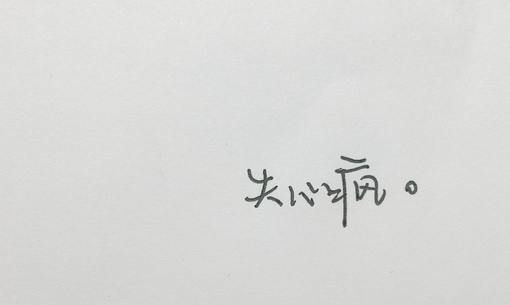 失心疯。